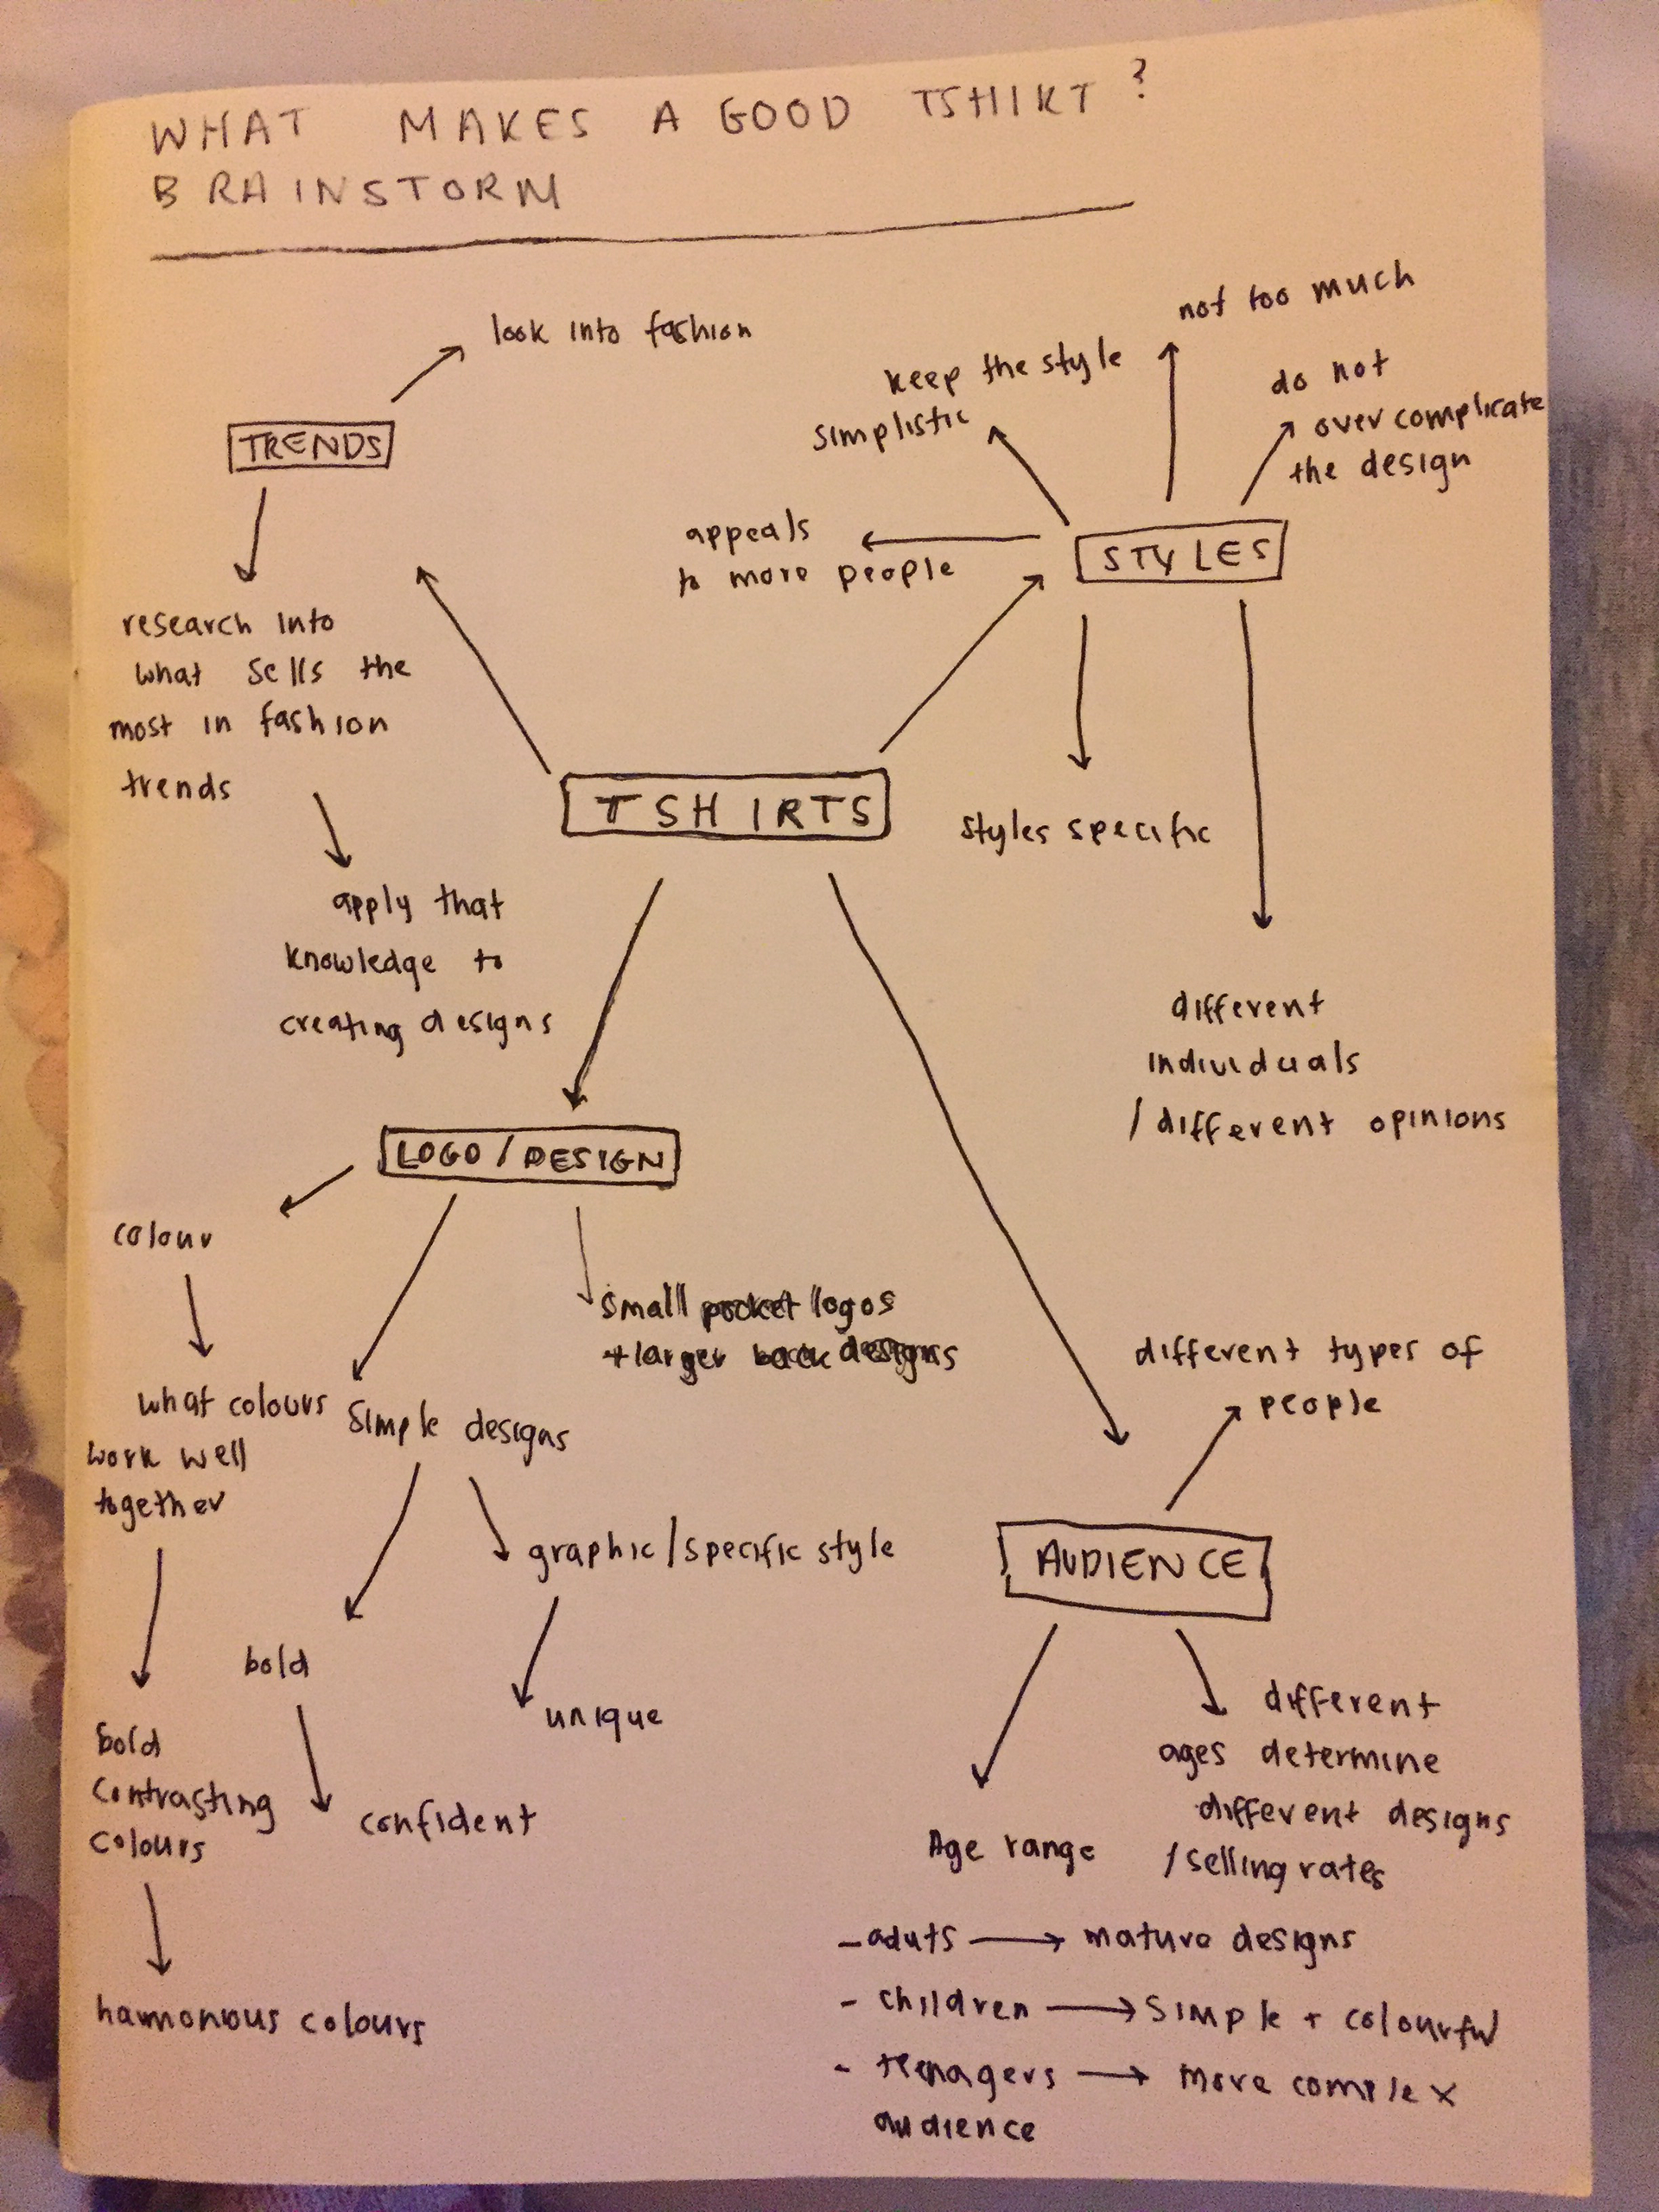 WHAT MAKES A GOOD TSHIRT?
BRAINSTORM
look into fashion
TRENDS
research into
what sells the
most in fashion
trends
apply that
knowledge to
creating designs
not too much
keep the style
simplistic
do not
over complicate
the design
appeals
to more people
STYLES
styles specific
different
individuals
/different opinions
TSHIRTS
LOGO/DESIGN
colour
what colours
work well
together
bold
contrasting
colours
hamonous colours
small pocket logos
+larger back designs
simple designs
graphic/specific style
unique
bold
confident
different types of
people
AUDIENCE
Age range
different
ages determine
different designs
/selling rates
- aduts → mature designs
- children → simple + colourful
- teenagers → more complex
audience